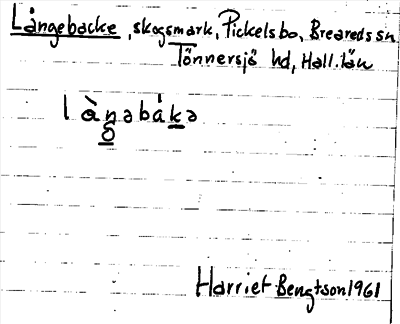 Långebacke, skogsmark, Pickelsbo, Breareds sn
Tönnersjö hd, Hall. län
l å̀n̲əbák̲ə
o̲
Harriet Bengtson 1961